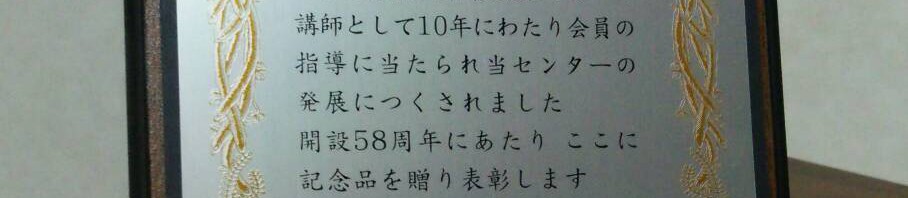 講師として10年にわたり会員の
指導に当たられ当センターの
発展につくされました
開設58周年にあたり ここに
記念品を贈り表彰します